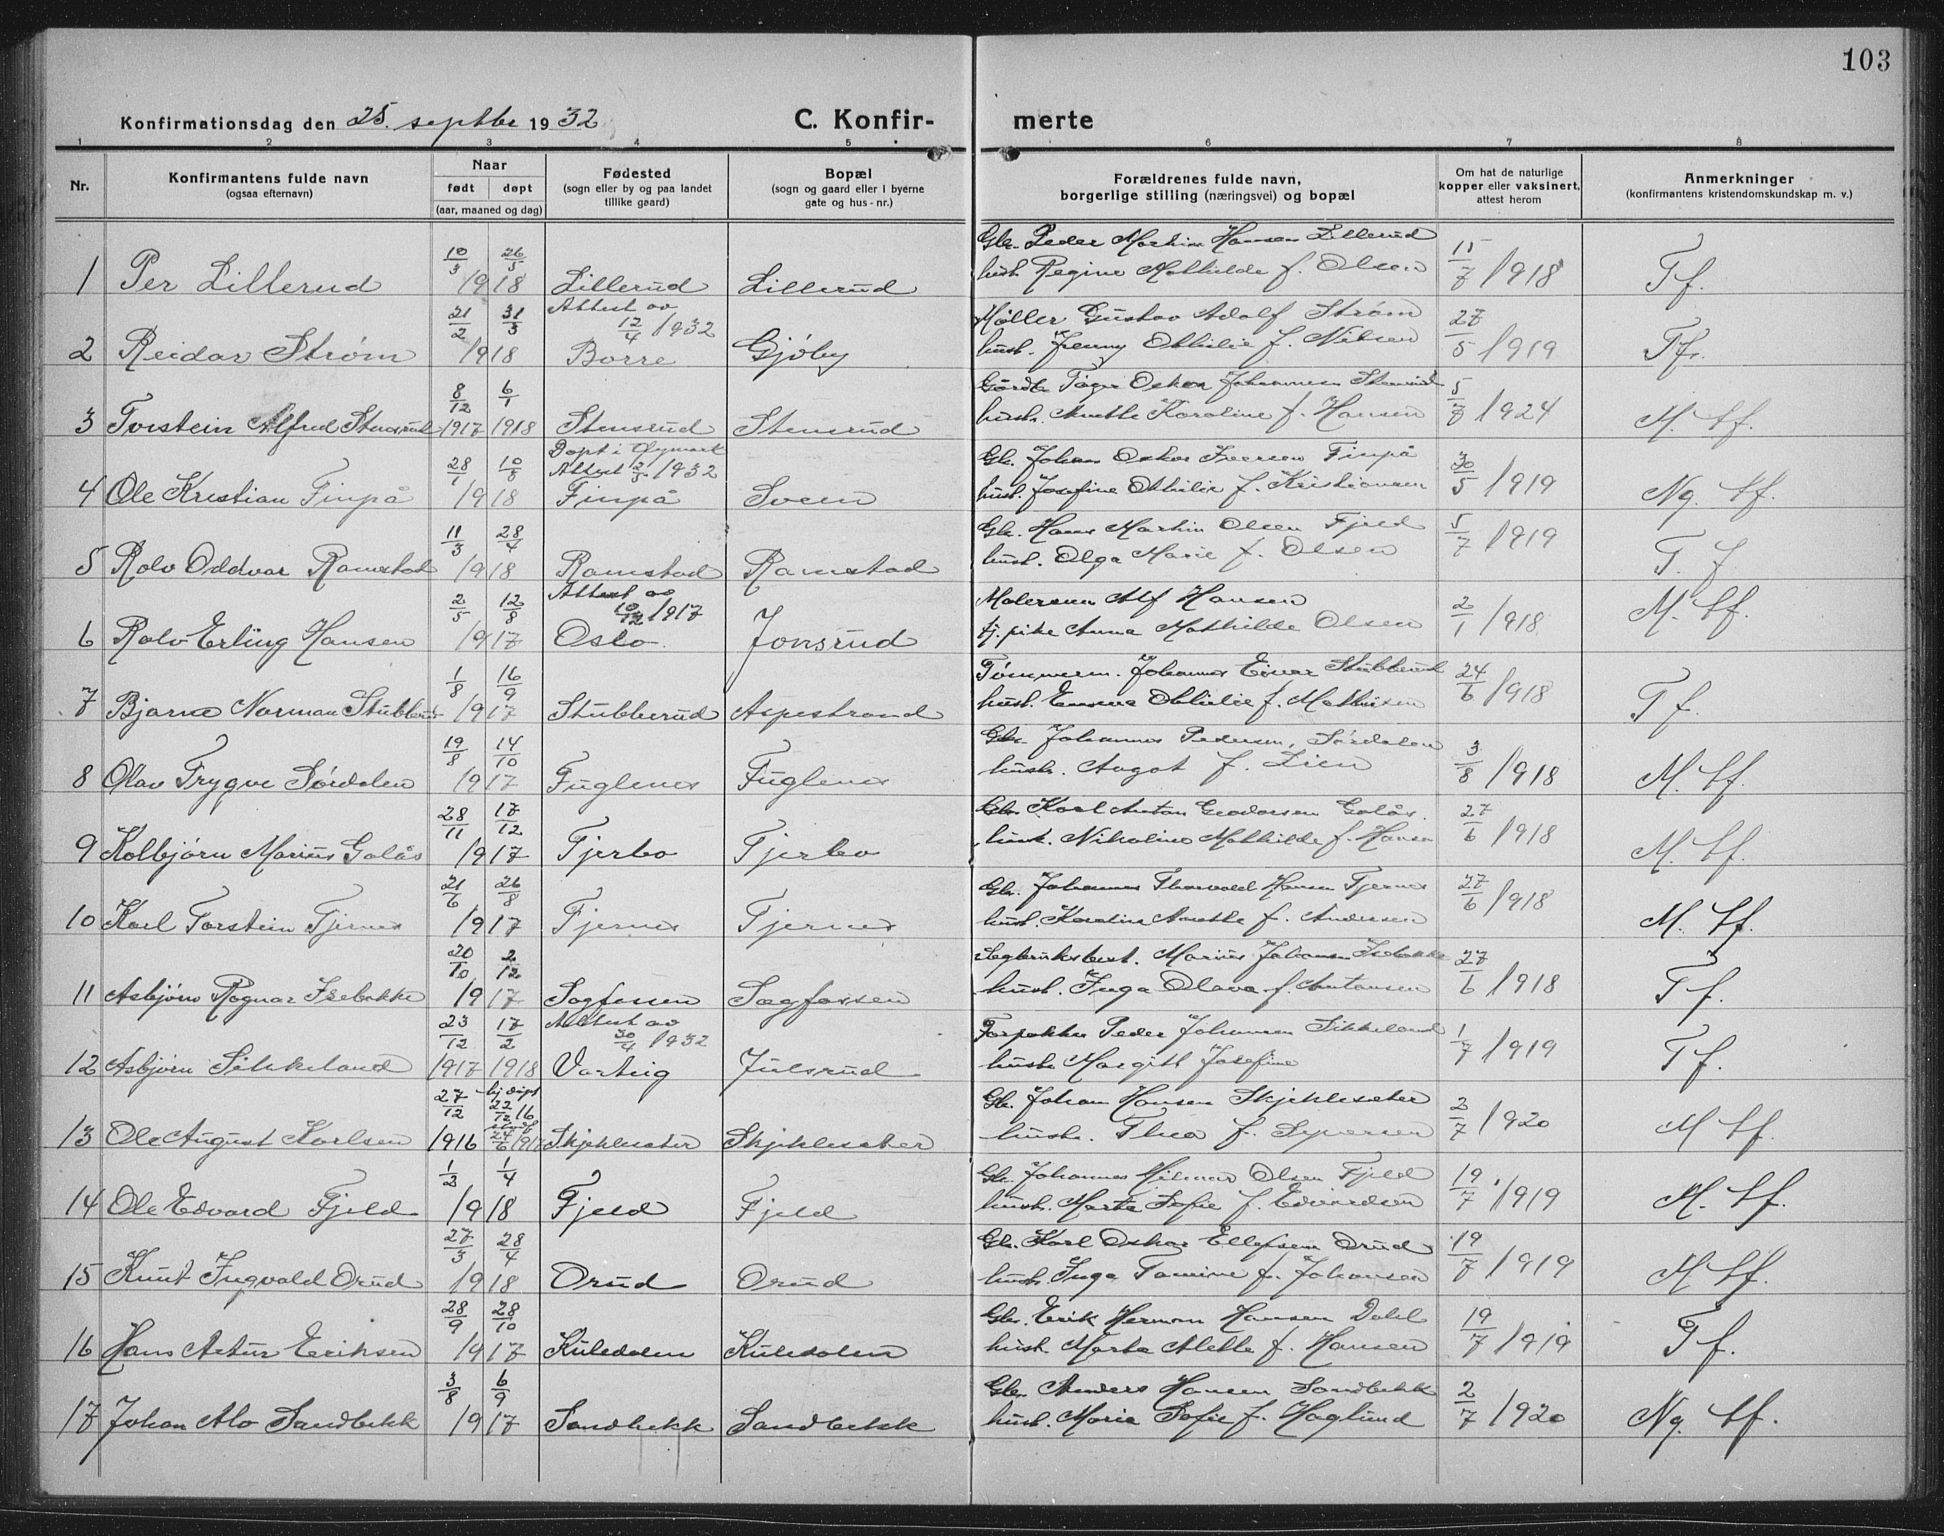 103
Konfirmationsdag den 25. septbr 1932 C. Konfir- merte
1 2 3 4 5 6 7 8
Nr. Konfirmantens fulde navn (ogsaa efternavn) Naar født døpt (aar, maaned og dag) Fødested (sogn eller by og paa landet tillike gaard) Bopæl (sogn og gaard eller i byerne gate og hus-nr.) Forældrenes fulde navn, borgerlige stilling (næringsvei) og bopæl Om hat de naturlige kopper eller vaksinert, attest herom Anmerkninger (konfirmantens kristendomskundskap m. v.)
Gbr. Peder Martin Hansen Lillerud
1 Per Lillerud 10/3 26/5 1918 Lillerud Lillerud hust. Regine Mathilde f. Olsen 15/7 1918 T f.
Attest av 12/4 1932 Møller Gustav Adolf Strøm
2 Reidar Strøm 21/2 31/3 1918 Borre Gjøby hust. Jenny Othilie f. Nilsen 27/5 1919 Tf.
Gårdbr. Tage Oskar Johannesen Stensrud
3 Torstein Alfred Stensrud 8/12 1917 6/1 1918 Stensrud Stensrud hust. Anette Karoline f. Hansen 5/7 1924 M. tf.
Døpt i Øymark Attest 12/5 1932 Gbr. Johan Oskar Iversen Finpå
4 Ole Kristian Finpå 28/1 10/3 1918 Finpå Sveen hust. Josefine Othilie f. Kristiansen 30/5 1919 Ng. tf.
Gbr. Hans Martin Olsen Fjeld
5 Rolv Oddvar Ramstad 11/3 28/4 1918 Ramstad Ramstad hust. Olga Marie f. Olsen 5/7 1919 T. f
Attest av 10/12 1917 Malersven Alf Hansen
6 Rolv Erling Hansen 2/5 12/8 1917 Oslo. Jonsrud tj. pike Anna Mathilde Olsen 2/1 1918 M. tf.
Tømmerm. Johannes Einar Stubberud
7 Bjarne Norman Stubberud 1/8 16/9 1917 Stubberud Aspestrand hust. Emma Othilie f. Mathisen 24/6 1918 T f.
Gbr. Johannes Pedersen, Sørdalen
8 Olav Trygve Sørdalen 19/8 14/10 1917 Fuglenes Fuglenes hust. Aagot f. Lien 3/8 1918 M. tf.
Gbr. Karl Anton Geodorsen Galås.
9 Kolbjørn Marius Galås 28/11 17/12 1917 Tjerbo Tjerbo hust. Nikoline Mathilde f. Hansen 27/6 1918 M. tf.
Gbr. Johannes Thorvald Hansen Tjernes
10 Karl Torstein Tjernes 21/6 26/8 1917 Tjernes Tjernes hust. Karoline Anette f. Andersen 27/6 1918 M. tf.
Marius Johansen Isebakke
11 Asbjørn Ragnar Isebakke 20/10 2/12 1917 Sagfossen Sagfossen hust. Inga Olava f. Antonsen 27/6 1918 T f.
Attest av 30/4 1932 Forpakter Peder Johannesen Sikkeland
12 Asbjørn Sikkeland 23/12 1917 17/2 1918 Varteig Julsrud hustr. Margitt Josefine 1/7 1919 T f.
Gbr. Johan Hansen Skjeklesæter
13 Ole August Karlsen 27/12 1916 hj.døpt 22/12 16 24/6 1917 Skjeklesæter Skjeklesæter hustr. Thea f. Syversen 2/7 1920 M tf.
Gbr. Johannes Hilmar Olsen Fjeld
14 Ole Edvard Fjeld 1/2 1/4 1918 Fjeld Fjeld hust. Marta Sofie f. Edvardsen 19/7 1919 M. tf.
Gbr. Karl Oskar Ellefsen Orud
15 Knut Ingvald Orud 27/3 28/4 1918 Orud Orud hust. Inga Tomine f. Johansen 19/7 1919 M tf.
Gbr. Erik Herman Hansen Dahl
16 Hans Artur Eriksen 28/9 28/10 1917 Kuledalen Kuledalen hust. Marta Alette f. Hansen 19/7 1919 T f.
Gbr. Anders Hansen Sandbekk
17 Johan Alo Sandbekk 3/8 6/9 1917 Sandbekk Sandbekk hust. Marie Sofie f. Haglund 2/7 1920 Ng. tf.